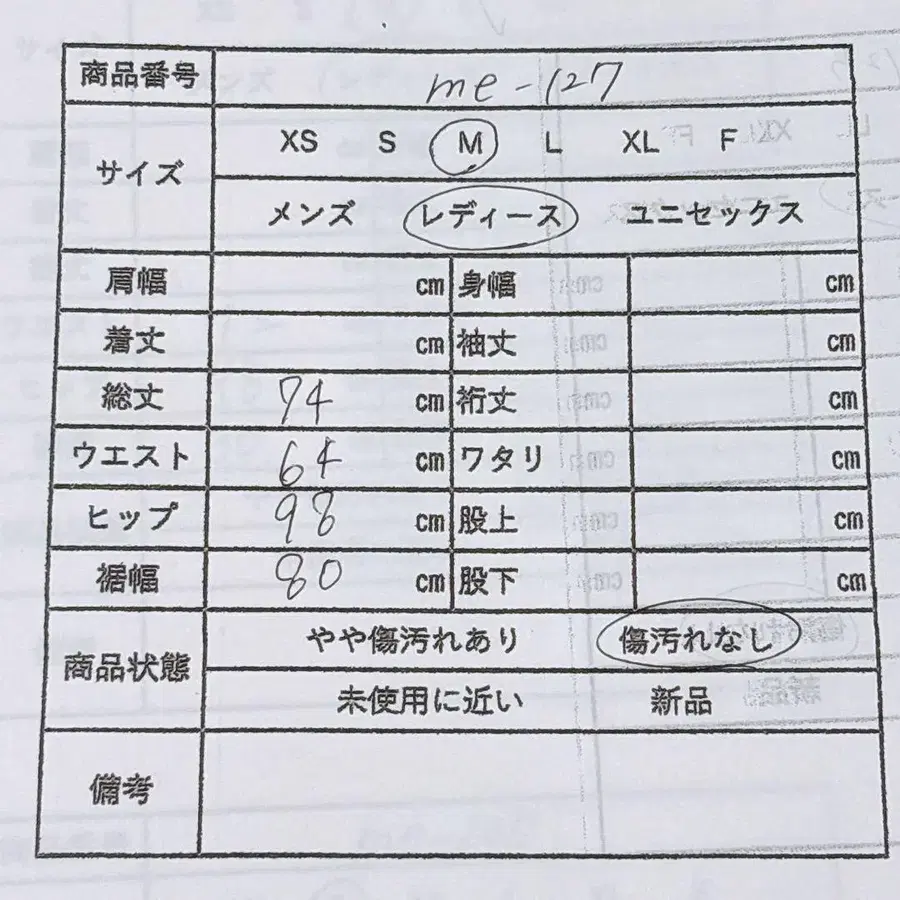 商品番号 me-127
サイズ XS S M L XL F
メンズ レディース ユニセックス
肩幅 cm 身幅 cm
着丈 cm 袖丈 cm
総丈 74 cm 裄丈 cm
ウエスト 64 cm ワタリ cm
ヒップ 98 cm 股上 cm
裾幅 80 cm 股下 cm
商品状態 やや傷汚れあり 傷汚れなし
未使用に近い 新品
備考